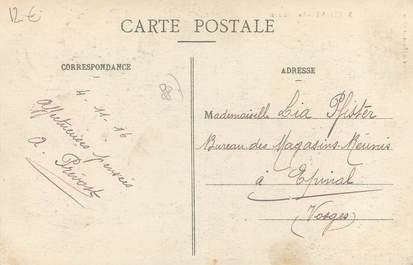 12 €
CARTE POSTALE
CORRESPONDANCE
ADRESSE
4 - 11 - 16
Affectueuses pensées
A. Prévost
Mademoiselle Lia Pfister
Bureau des Magasins-Réunis
à Epinal
(Vosges)